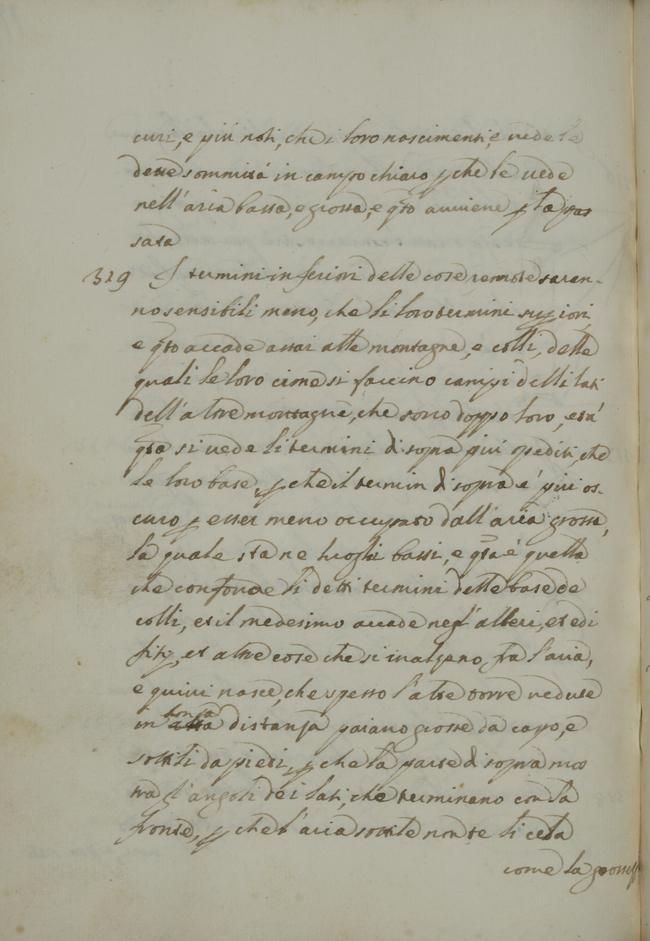 curi, e più noti, che i loro nascimenti, e vede le
dette sommità in campo chiaro p che le vede
nell'aria bassa, e grossa, e qto avviene p la pas
sata
319 I termini inferiori delle cose remote saran-
no sensibili meno, che li loro termini superiori,
e qto accade assai alle montagne, e colli, delle
quali le loro cime si faccino campi delli lati
dell'altre montagne, che sono doppo loro, et a'
qte si vede li termini di sopra più spediti, che
le loro base, p che il termin di sopra è più os-
curo p esser meno occupato dall'aria grossa,
la quale sta ne luoghi bassi, e qta è quella
che confonde li detti termini delle base de
colli, et il medesimo accade negl'alberi, et edi
fitj, et altre cose che si inalzano fra l'aria,
e quivi nasce, che spesso l'alte torre vedute
in longa distanza paiano grosse da capo, e
sottili da piedi, p che la parte di sopra mos
tra gl'angoli dei lati, che terminano con la
fronte, p che l'aria sottile non te li cela
come la